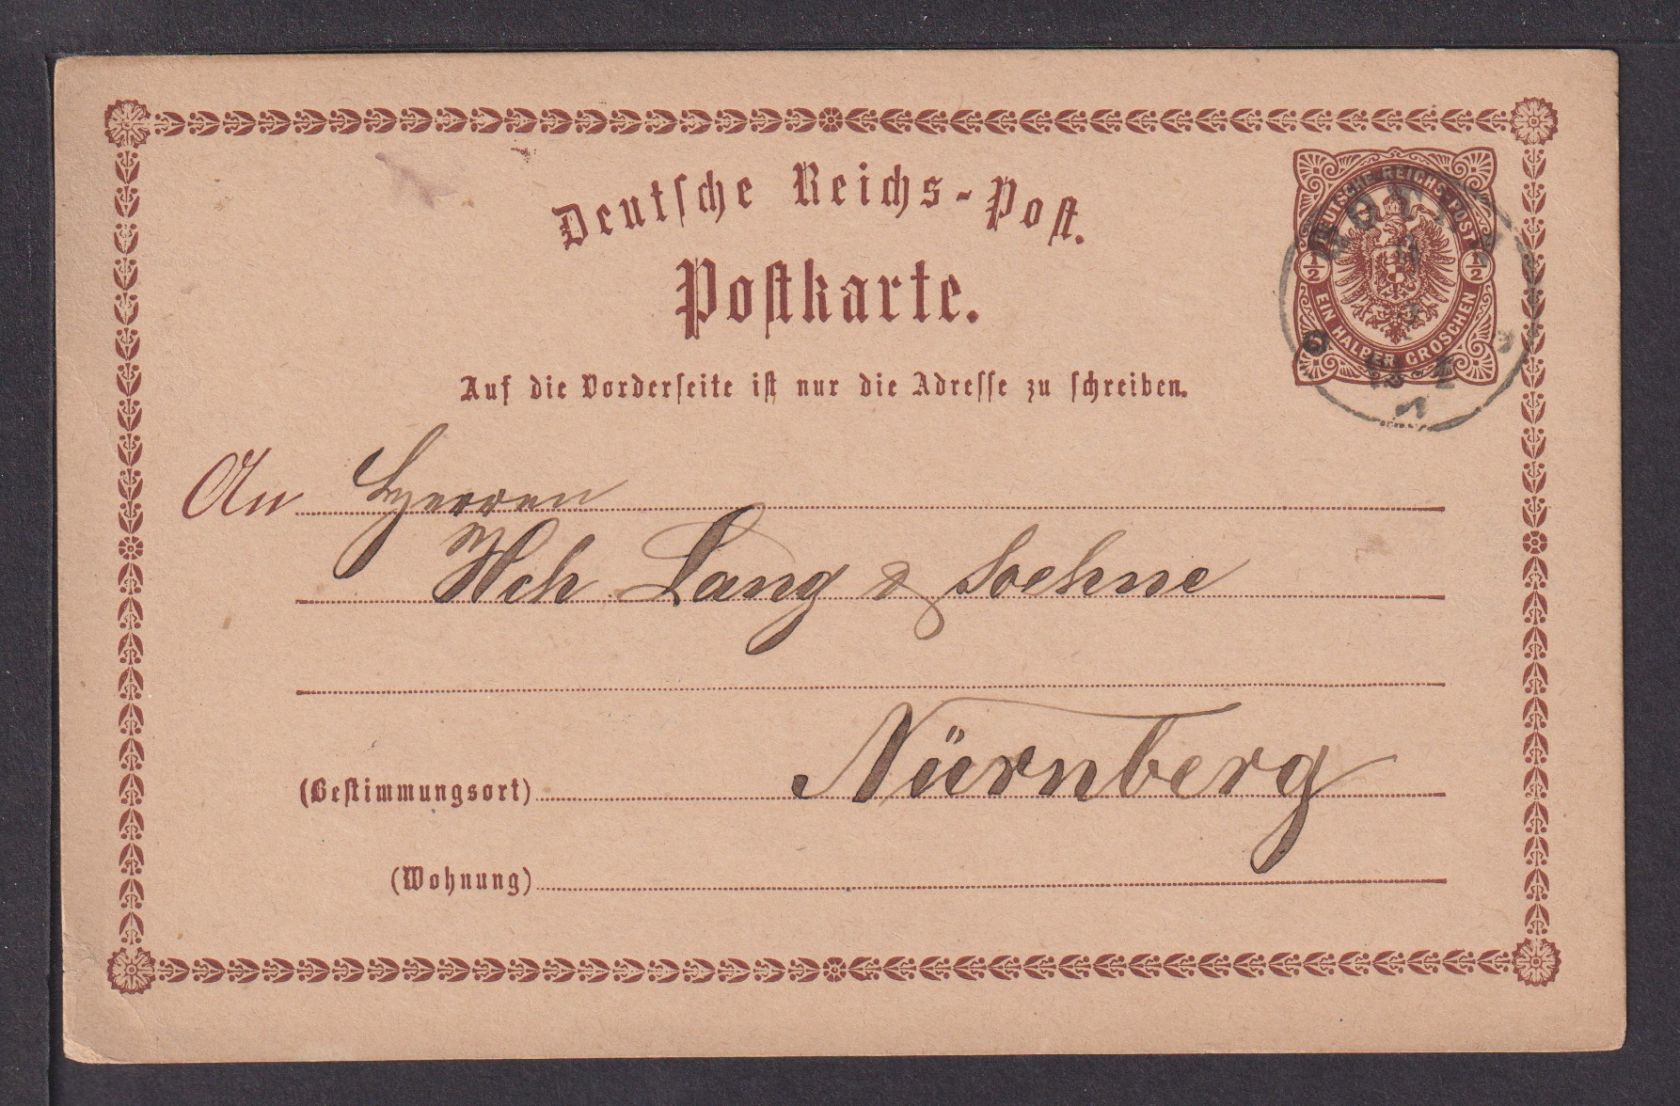 Deutsche Reichs-Post.
Postkarte.
DEUTSCHE REICHS-POST
1/2 1/2
EIN HALBER GROSCHEN
Auf die Vorderseite ist nur die Adresse zu schreiben.
An Herren
Hch Lang & Soehne
Nürnberg
(Bestimmungsort)
(Wohnung)